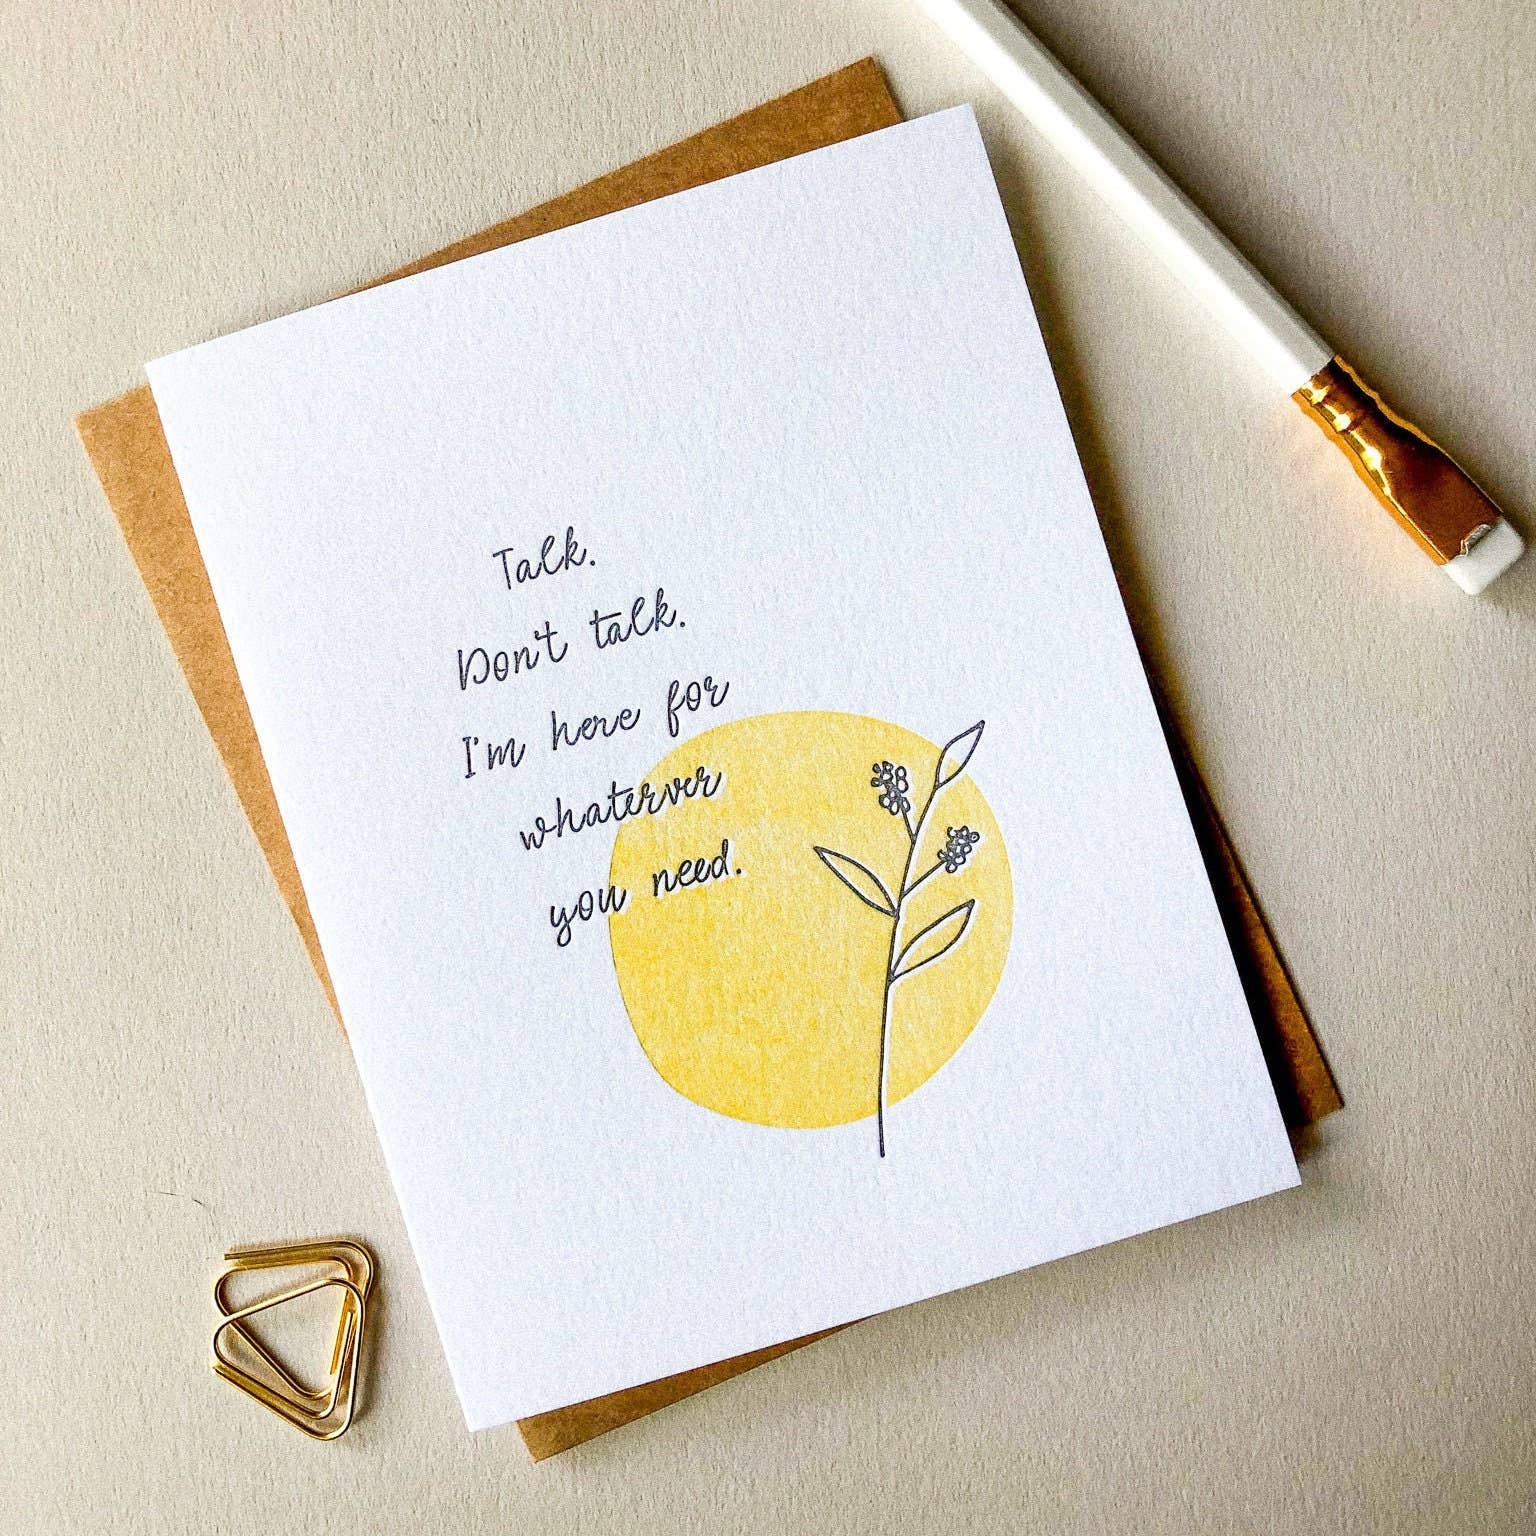 Talk.
Don't talk.
I'm here for
whaterver
you need.